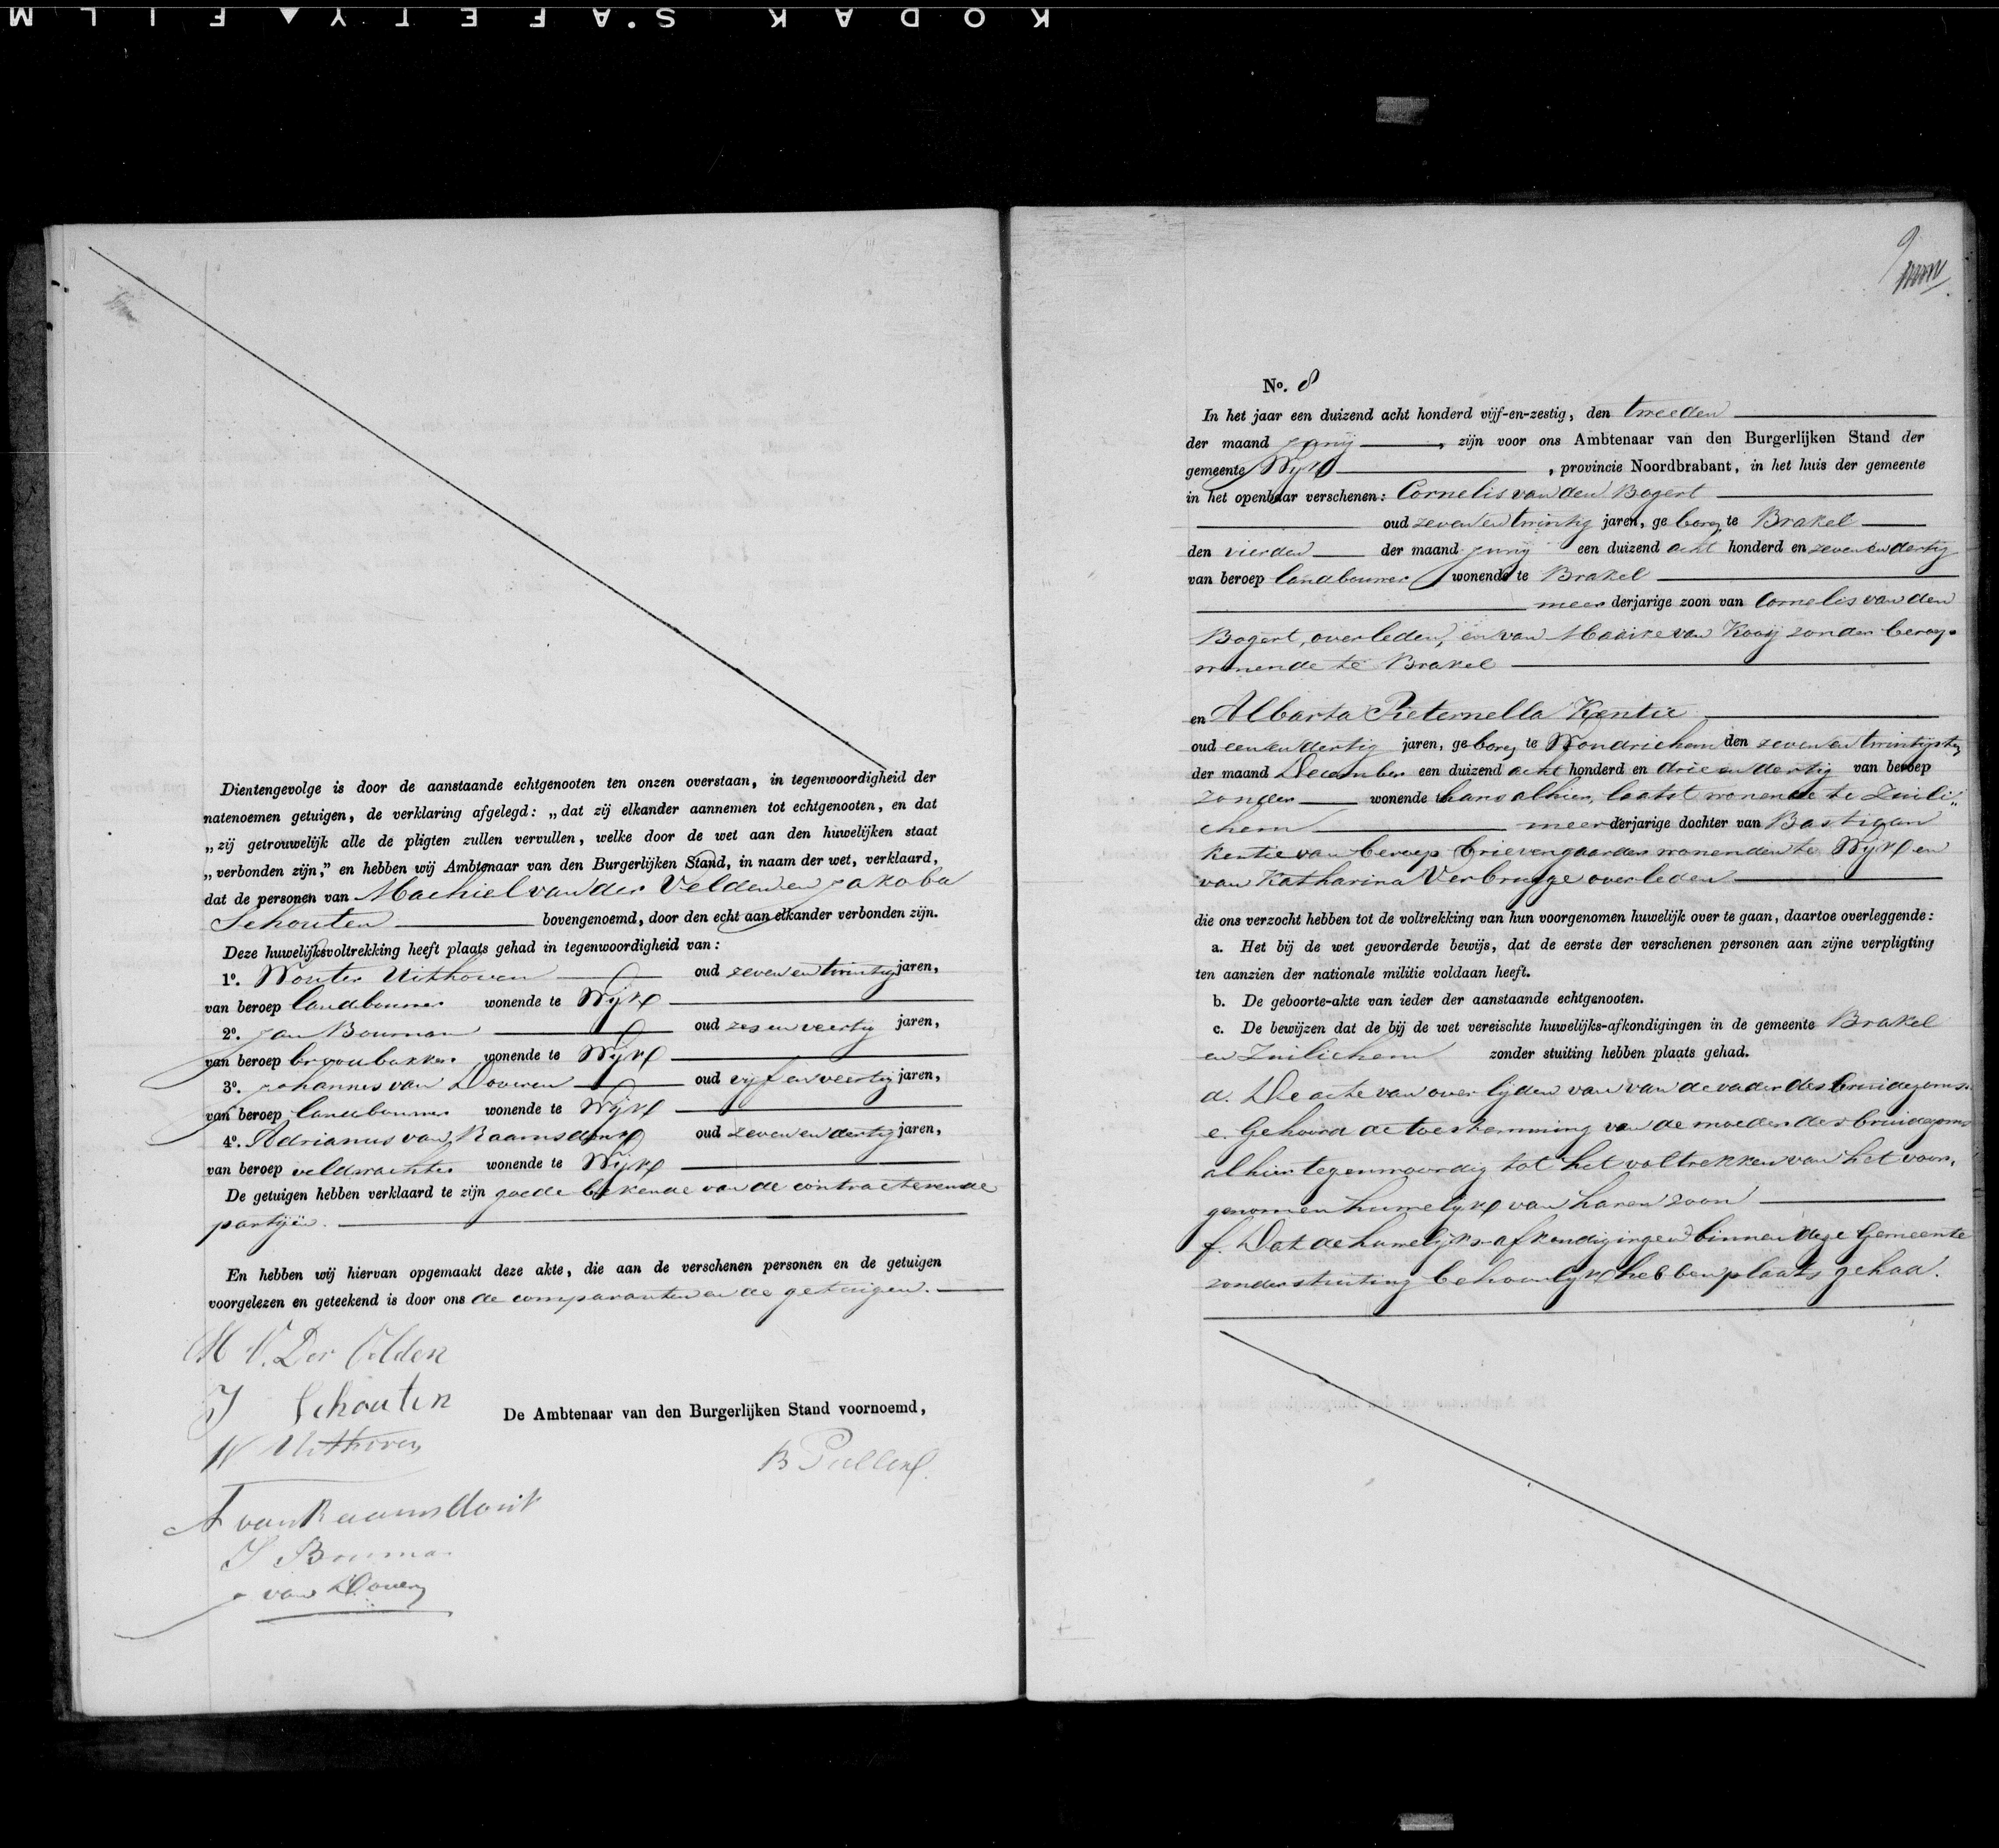 KODAK SAFETY FILM
Dientengevolge is door de aanstaande echtgenooten ten onzen overstaan, in tegenwoordigheid der
natenoemen getuigen, de verklaring afgelegd: „dat zij elkander aannemen tot echtgenooten, en dat
„zij getrouwelijk alle de pligten zullen vervullen, welke door de wet aan den huwelijken staat
„verbonden zijn," en hebben wij Ambtenaar van den Burgerlijken Stand, in naam der wet, verklaard,
dat de personen van Machiel van der Velden en Jakoba
Schouten bovengenoemd, door den echt aan elkander verbonden zijn.
Deze huwelijksvoltrekking heeft plaats gehad in tegenwoordigheid van:
1º. Wouter Uithoven oud zeven en twintig jaren,
van beroep landbouwer wonende te Wijk
2º. Jan Bouman oud zes en veertig jaren,
van beroep broodbakker wonende te Wijk
3º. Johannes van Doveren oud vijf en veertig jaren,
van beroep landbouwer wonende te Wijk
4º. Adrianus van Raamsdonk oud zeven en dertig jaren,
van beroep veldwachter wonende te Wijk
De getuigen hebben verklaard te zijn goede bekende van de contracterende
partijen.
En hebben wij hiervan opgemaakt deze akte, die aan de verschenen personen en de getuigen
voorgelezen en geteekend is door ons de comparanten en de getuigen.
M V. Der Velden
J Schouten
De Ambtenaar van den Burgerlijken Stand voornoemd,
W Uithoven
B Pullen
A van Raamsdonk
J Bouman
van Doveren
9
No. 8
In het jaar een duizend acht honderd vijf-en-zestig, den tweeden
der maand Junij, zijn voor ons Ambtenaar van den Burgerlijken Stand der
gemeente Wijk, provincie Noordbrabant, in het huis der gemeente
in het openbaar verschenen: Cornelis van den Bogert
oud zeven en twintig jaren, geboren te Brakel
den vierden der maand Junij een duizend acht honderd en zeven en dertig
van beroep landbouwer wonende te Brakel
meerderjarige zoon van Cornelis van den
Bogert, overleden, en van Maaike van Kooij zonder beroep
wonende te Brakel
en Albarta Pieternella Kentie
oud een en dertig jaren, geboren te Woudrichem den zeven en twintigsten
der maand December een duizend acht honderd en drie en dertig van beroep
zonder wonende thans alhier, laatst wonende te Zuili„
chem meerderjarige dochter van Bastiaan
Kentie van beroep brievengaarder wonende te Wijk en
van Katharina Verbrugge overleden
die ons verzocht hebben tot de voltrekking van hun voorgenomen huwelijk over te gaan, daartoe overleggende:
a. Het bij de wet gevorderde bewijs, dat de eerste der verschenen personen aan zijne verpligting
ten aanzien der nationale militie voldaan heeft.
b. De geboorte-akte van ieder der aanstaande echtgenooten.
c. De bewijzen dat de bij de wet vereischte huwelijks-afkondigingen in de gemeente Brakel
en Zuilichem zonder stuiting hebben plaats gehad.
d. De acte van overlijden van van de vader des bruidegoms.
e. Gehoord de toestemming van de moeder des bruidegoms
alhier tegenwoordig tot het voltrekken van het voor„
genomen huwelijk van haren zoon
f. Dat de huwelijks-afkondigingen binnen deze Gemeente
zonder stuiting behoorlijk hebben plaats gehad.